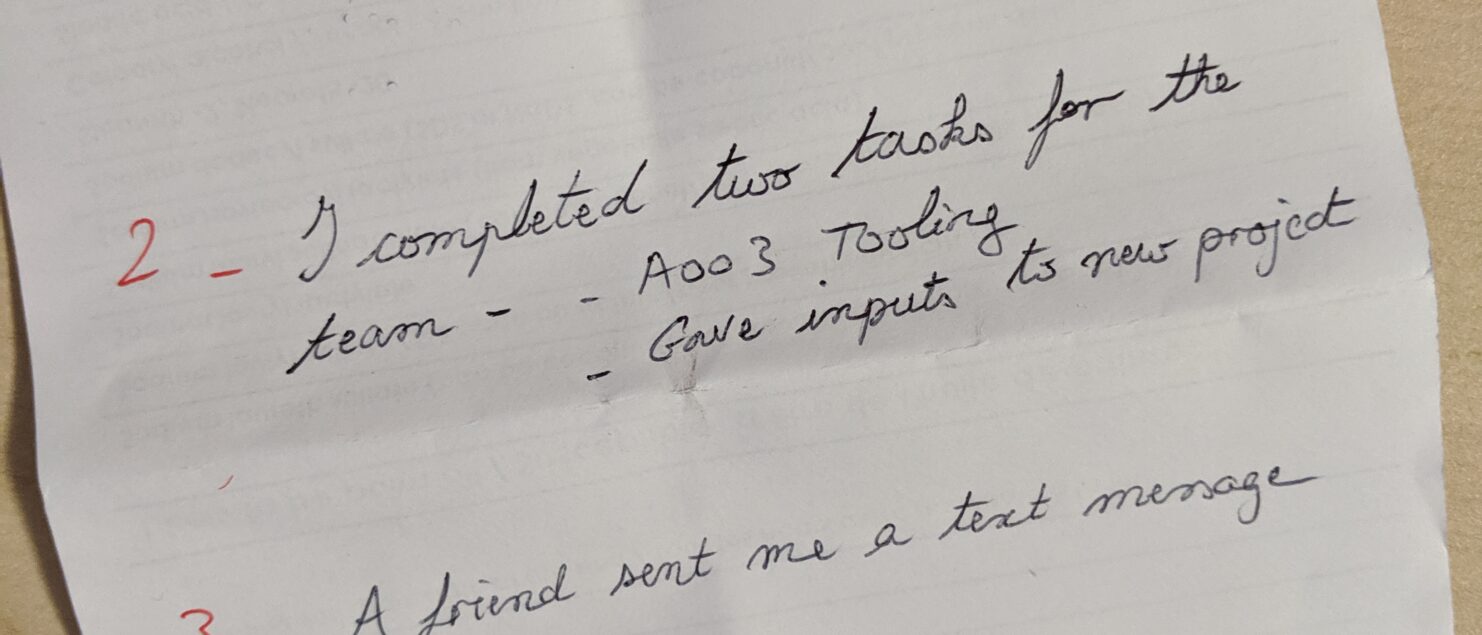 2 - I completed two tasks for the
team - - A003 Tooling
- Gave inputs to new project
3 A friend sent me a text message